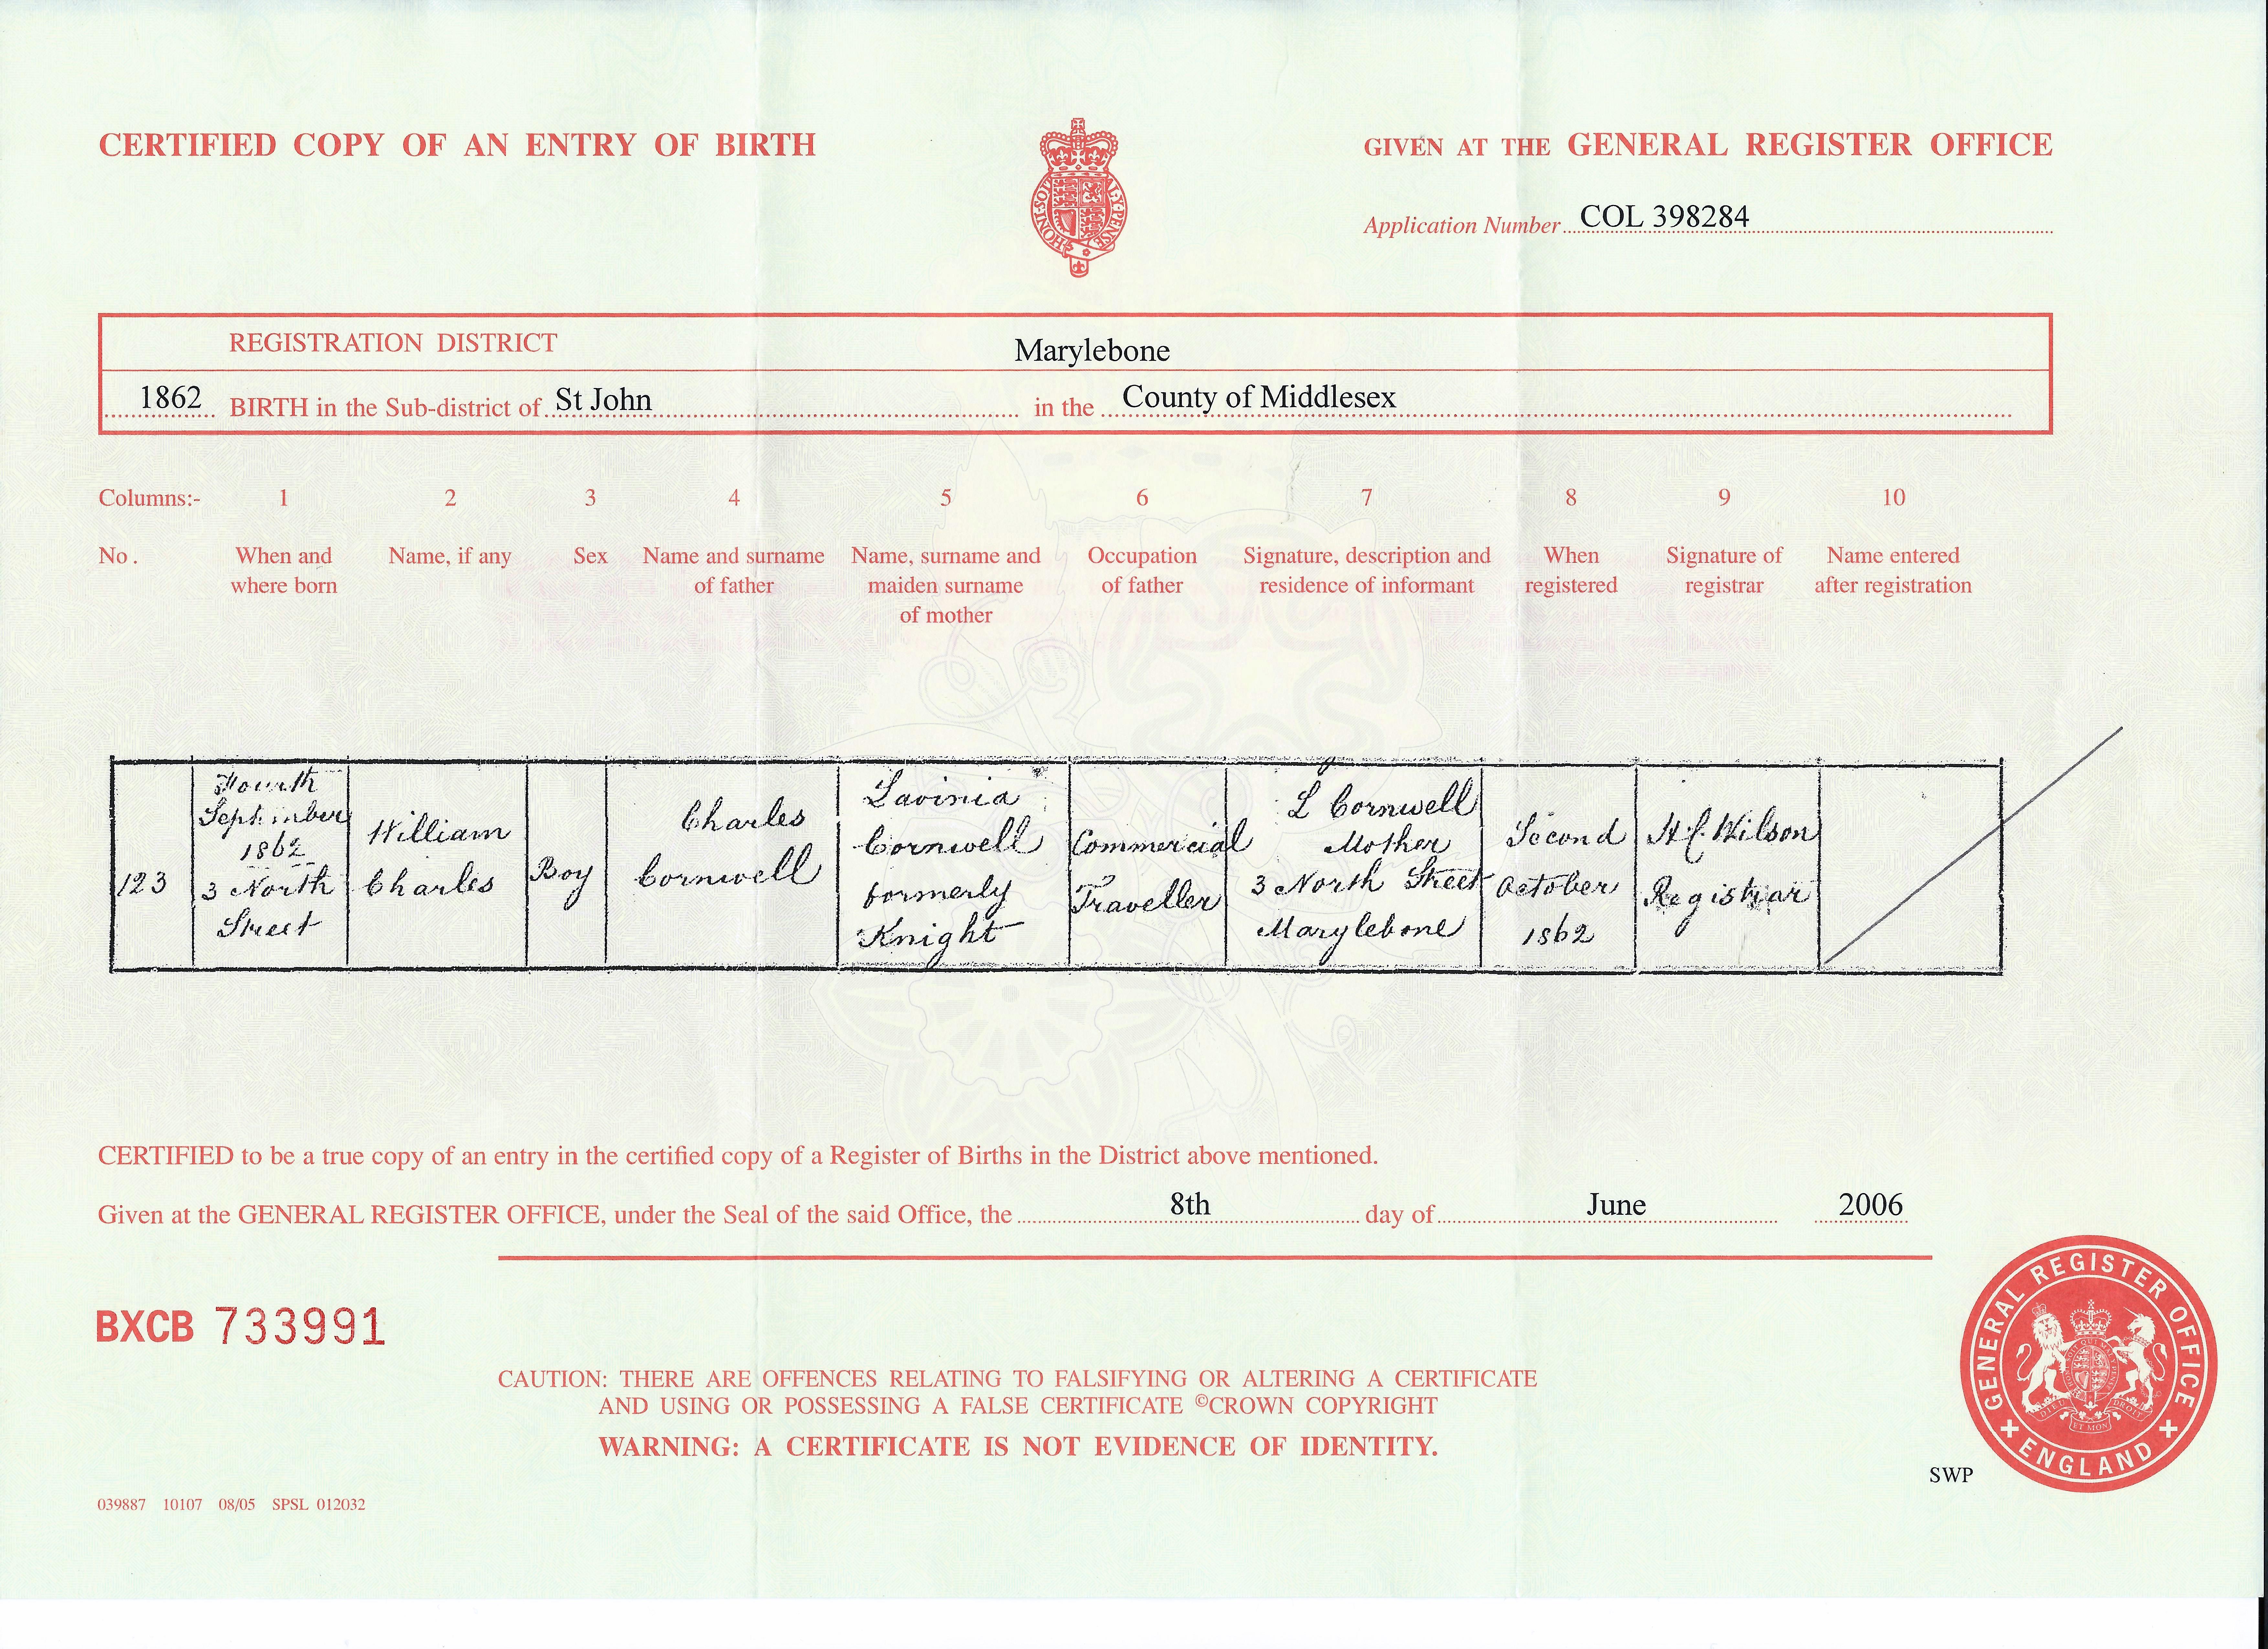 CERTIFIED COPY OF AN ENTRY OF BIRTH
GIVEN AT THE GENERAL REGISTER OFFICE
Application Number COL 398284
REGISTRATION DISTRICT Marylebone
1862 BIRTH in the Sub-district of St John in the County of Middlesex
Columns:- 1 2 3 4 5 6 7 8 9 10
No. When and where born
Name, if any
Sex
Name and surname of father
Name, surname and maiden surname of mother
Occupation of father
Signature, description and residence of informant
When registered
Signature of registrar
Name entered after registration
123
Fourth
September
1862
3 North
Street
William
Charles
Boy
Charles
Cornwell
Lavinia
Cornwell
formerly
Knight
Commercial
Traveller
L Cornwell
Mother
3 North Street
Marylebone
Second
October
1862
Wilson
Registrar
CERTIFIED to be a true copy of an entry in the certified copy of a Register of Births in the District above mentioned.
Given at the GENERAL REGISTER OFFICE, under the Seal of the said Office, the 8th day of June 2006
BXCB 733991
CAUTION: THERE ARE OFFENCES RELATING TO FALSIFYING OR ALTERING A CERTIFICATE
AND USING OR POSSESSING A FALSE CERTIFICATE ©CROWN COPYRIGHT
WARNING: A CERTIFICATE IS NOT EVIDENCE OF IDENTITY.
GENERAL REGISTER OFFICE
ENGLAND
SWP
039887 10107 08/05 SPSL 012032